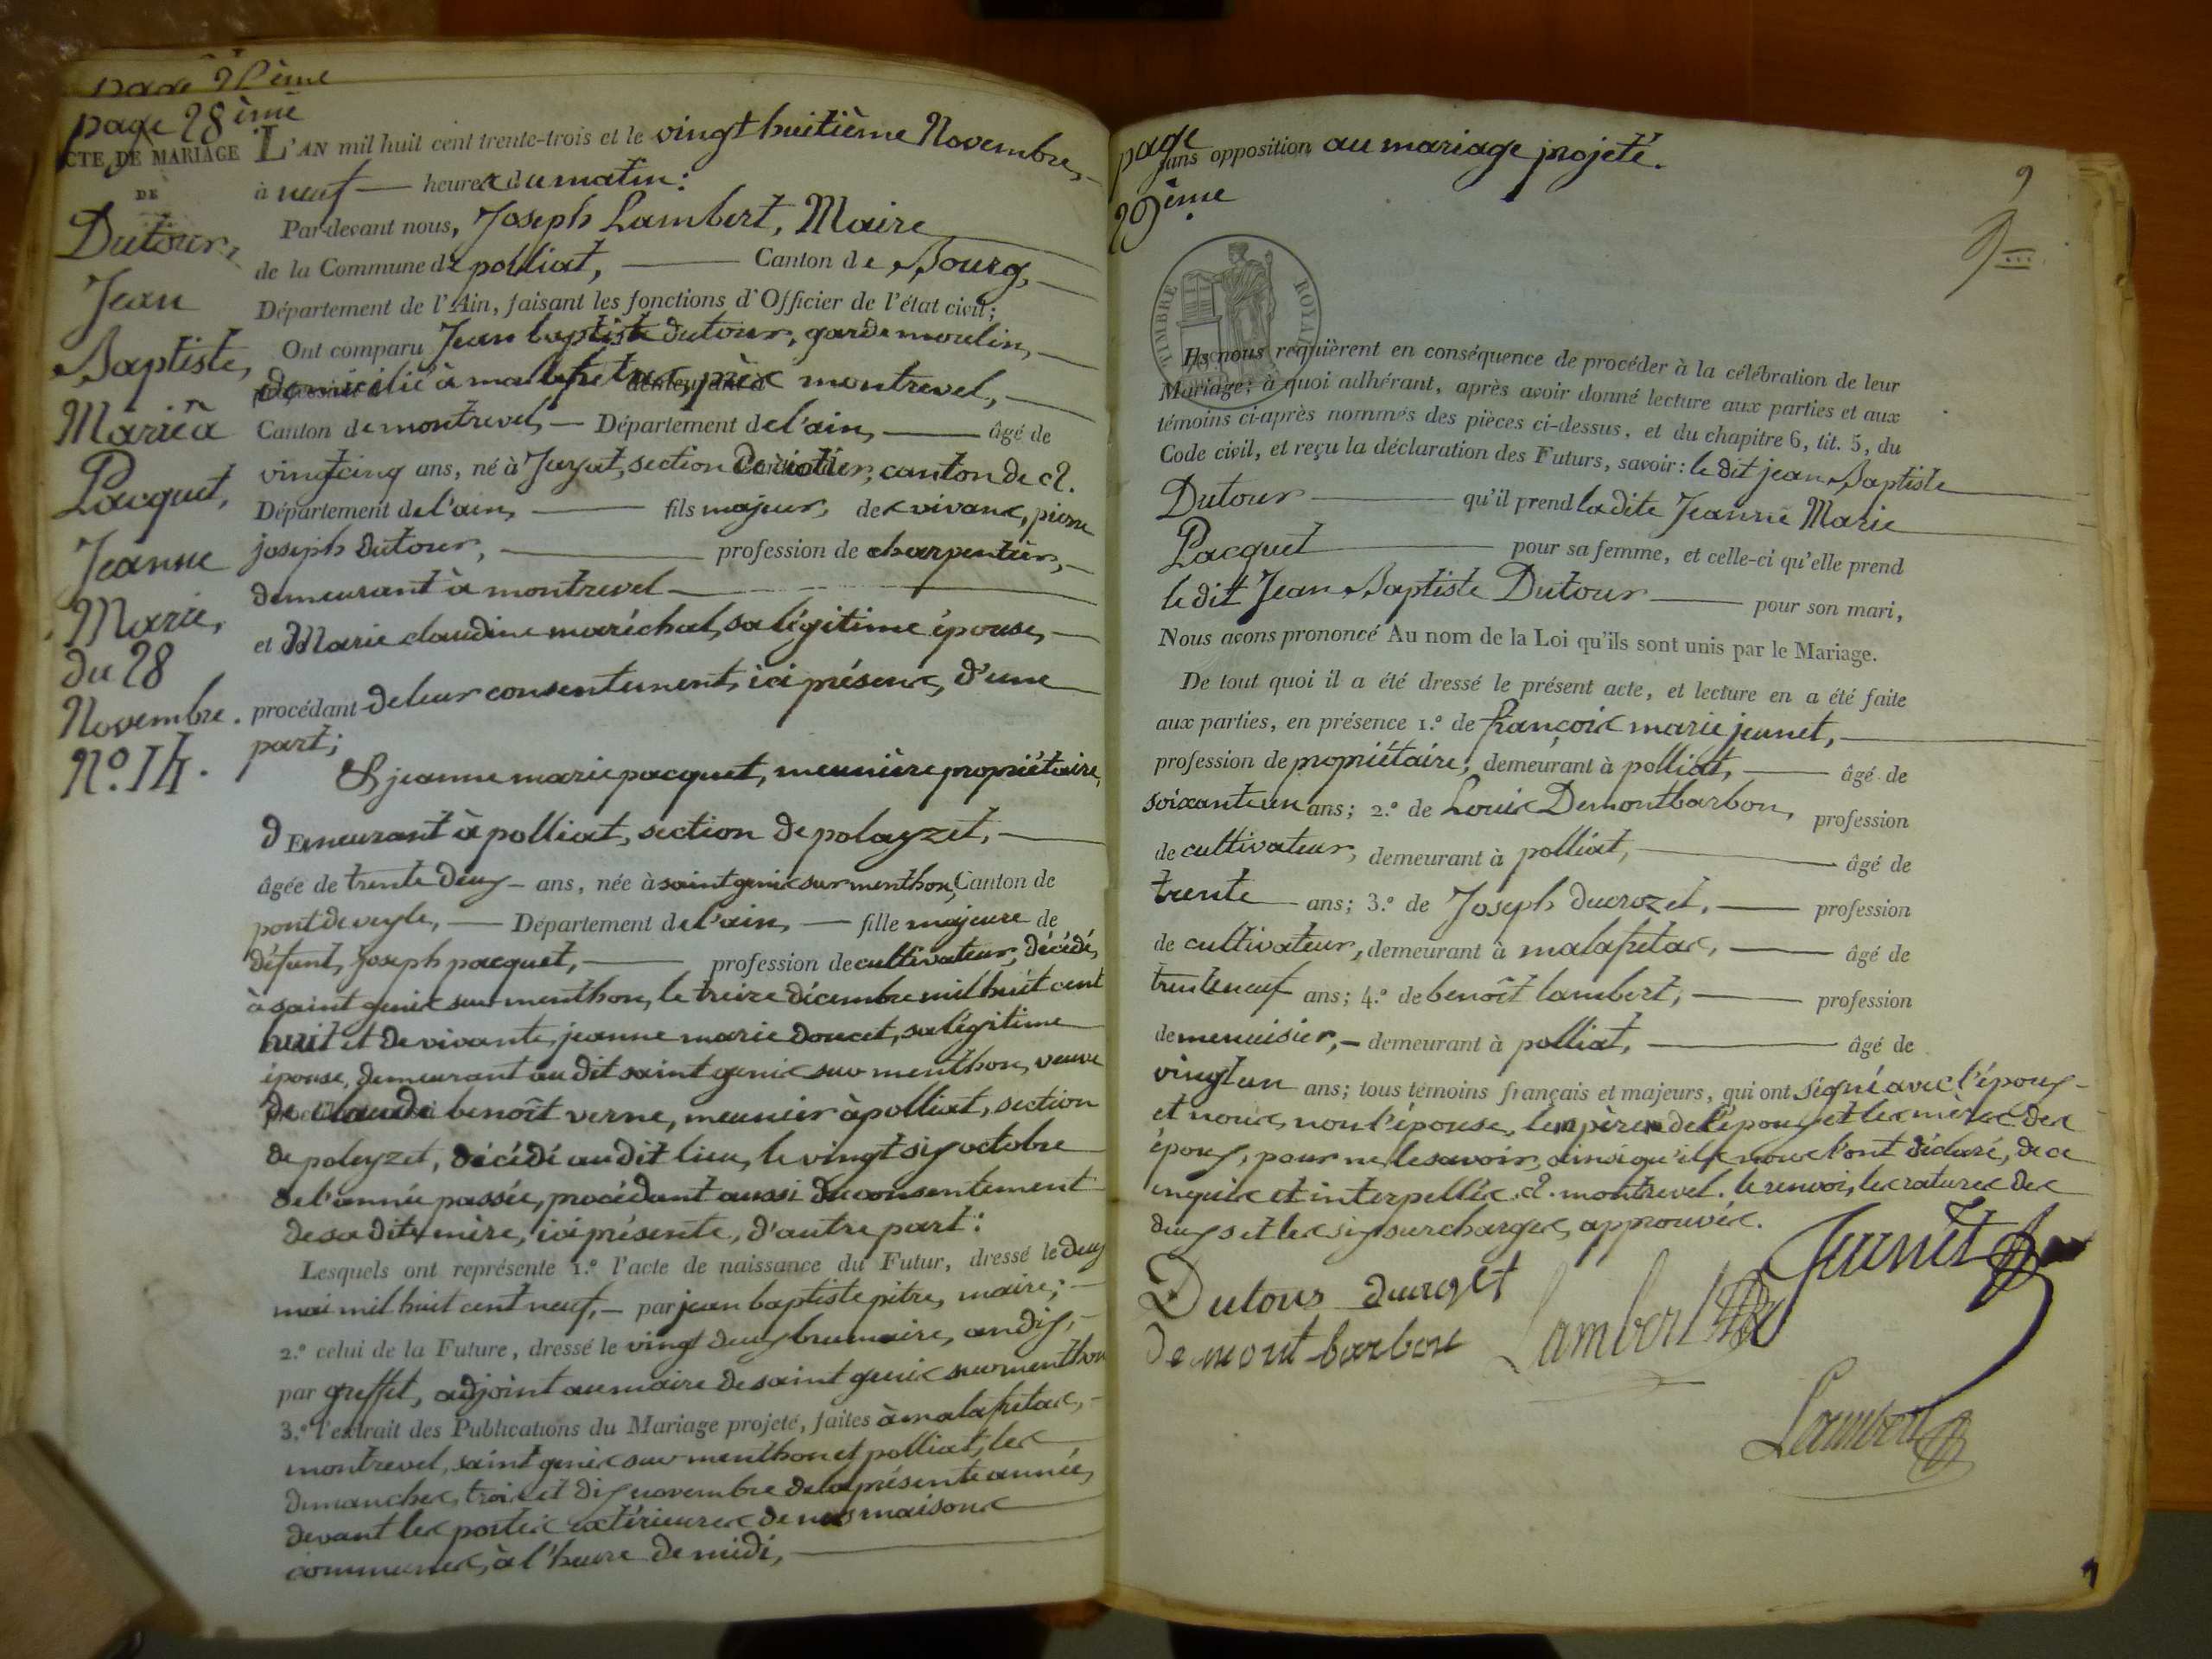 page 28ème
ACTE DE MARIAGE
DE
Dutour,
Jean
Baptiste,
Marié à
Pacquet,
Jeanne
Marie,
du 28
Novembre.
N.º 14.
L'AN mil huit cent trente-trois et le vingt huitième Novembre,
à neuf heures du matin:
Par-devant nous, Joseph Lambert, Maire
de la Commune de polliat, Canton de Bourg,
Département de l'Ain, faisant les fonctions d'Officier de l'état civil;
Ont comparu Jean baptiste dutour, garde moulin,
domicilié à malafretas, près montrevel,
Canton de montrevel, Département de l'ain, âgé de
vingt cinq ans, né à Jayat, section de cuotier, canton de d.
Département de l'ain, fils majeur, des vivans, pierre
joseph dutour, profession de charpentier,
demeurant à montrevel
et Marie claudine maréchal, sa légitime épouse,
procédant de leur consentement, ici présens, d'une
part;
Et jeanne marie pacquet, meunière propriétaire,
demeurant à polliat, section de polayzet,
âgée de trente deux ans, née à saint genis sur menthon, Canton de
pont de veyle, Département de l'ain, fille majeure de
défunt, joseph pacquet, profession de cultivateur, décédé,
à saint genis sur menthon, le treize décembre mil huit cent
huit et de vivante, jeanne marie doucet, sa légitime
épouse, demeurant au dit saint genis sur menthon, veuve
de claude benoît verne, meunier à polliat, section
de poleyzet, décédé au dit lieu, le vingt six octobre
de l'année passée, procédant aussi du consentement
de sa dite mère, ici présente, d'autre part:
Lesquels ont représenté 1.º l'acte de naissance du Futur, dressé le deux
mai mil huit cent neuf, par jean baptiste pitre, maire;
2.º celui de la Future, dressé le vingt deux brumaire, an dix,
par greffet, adjoint au maire de saint genis sur menthon
3.º l'extrait des Publications du Mariage projeté, faites à malafretas,
montrevel, saint genis sur menthon et polliat, les
dimanches, trois et dix novembre de la présente année,
devant les portes extérieures de nos maisons
communes, à l'heure de midi,
page
29ème
sans opposition au mariage projeté.
9
TIMBRE ROYAL
Ils nous requièrent en conséquence de procéder à la célébration de leur
Mariage; à quoi adhérant, après avoir donné lecture aux parties et aux
témoins ci-après nommés des pièces ci-dessus, et du chapitre 6, tit. 5, du
Code civil, et reçu la déclaration des Futurs, savoir: le dit jean Baptiste
Dutour qu'il prend la dite Jeanne Marie
Pacquet pour sa femme, et celle-ci qu'elle prend
le dit Jean Baptiste Dutour pour son mari,
Nous avons prononcé Au nom de la Loi qu'ils sont unis par le Mariage.
De tout quoi il a été dressé le présent acte, et lecture en a été faite
aux parties, en présence 1.º de françois marie jeunet,
profession de propriétaire, demeurant à polliat, âgé de
soixante un ans; 2.º de Louis Demontbarbon, profession
de cultivateur, demeurant à polliat, âgé de
trente ans; 3.º de Joseph ducrozet, profession
de cultivateur, demeurant à malafretas, âgé de
trente neuf ans; 4.º de benoît lambert, profession
de menuisier, demeurant à polliat, âgé de
vingt un ans; tous témoins français et majeurs, qui ont signé avec l'époux
et nous, non l'épouse, le père de l'époux et les mères des
époux, pour ne le savoir, ainsi qu'ils nous l'ont déclaré, de ce
enquis et interpellés. d. montrevel. le renvoi, les ratures des
deux s et les six surcharges, approuvés.
Dutour ducroset Jeunet
de mont-barbon Lambert
Lambert